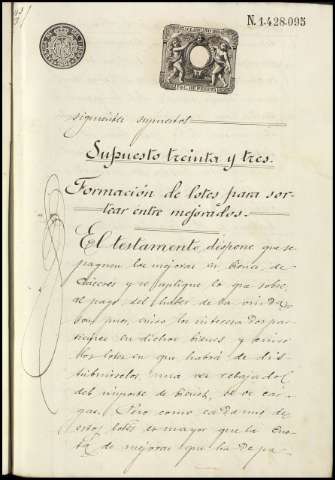 N. 1.428.095
siguientes supuestos
Supuesto treinta y tres.
Formación de lotes para sor-
tear entre mejorados.
El testamento, dispone que se
paguen las mejoras en bienes de
Cáceres y se aplique lo que sobre,
al pago del haber de la
son pues, cinco los interesados par-
tícipes en dichos bienes y cinco
los lotes en que habrá de dis-
tribuirselos, una vez rebajado
del importe de bienes, el de car-
gas. Pero como cada uno de
estos lotes es mayor que la cuo-
ta de mejoras que ha de pa-